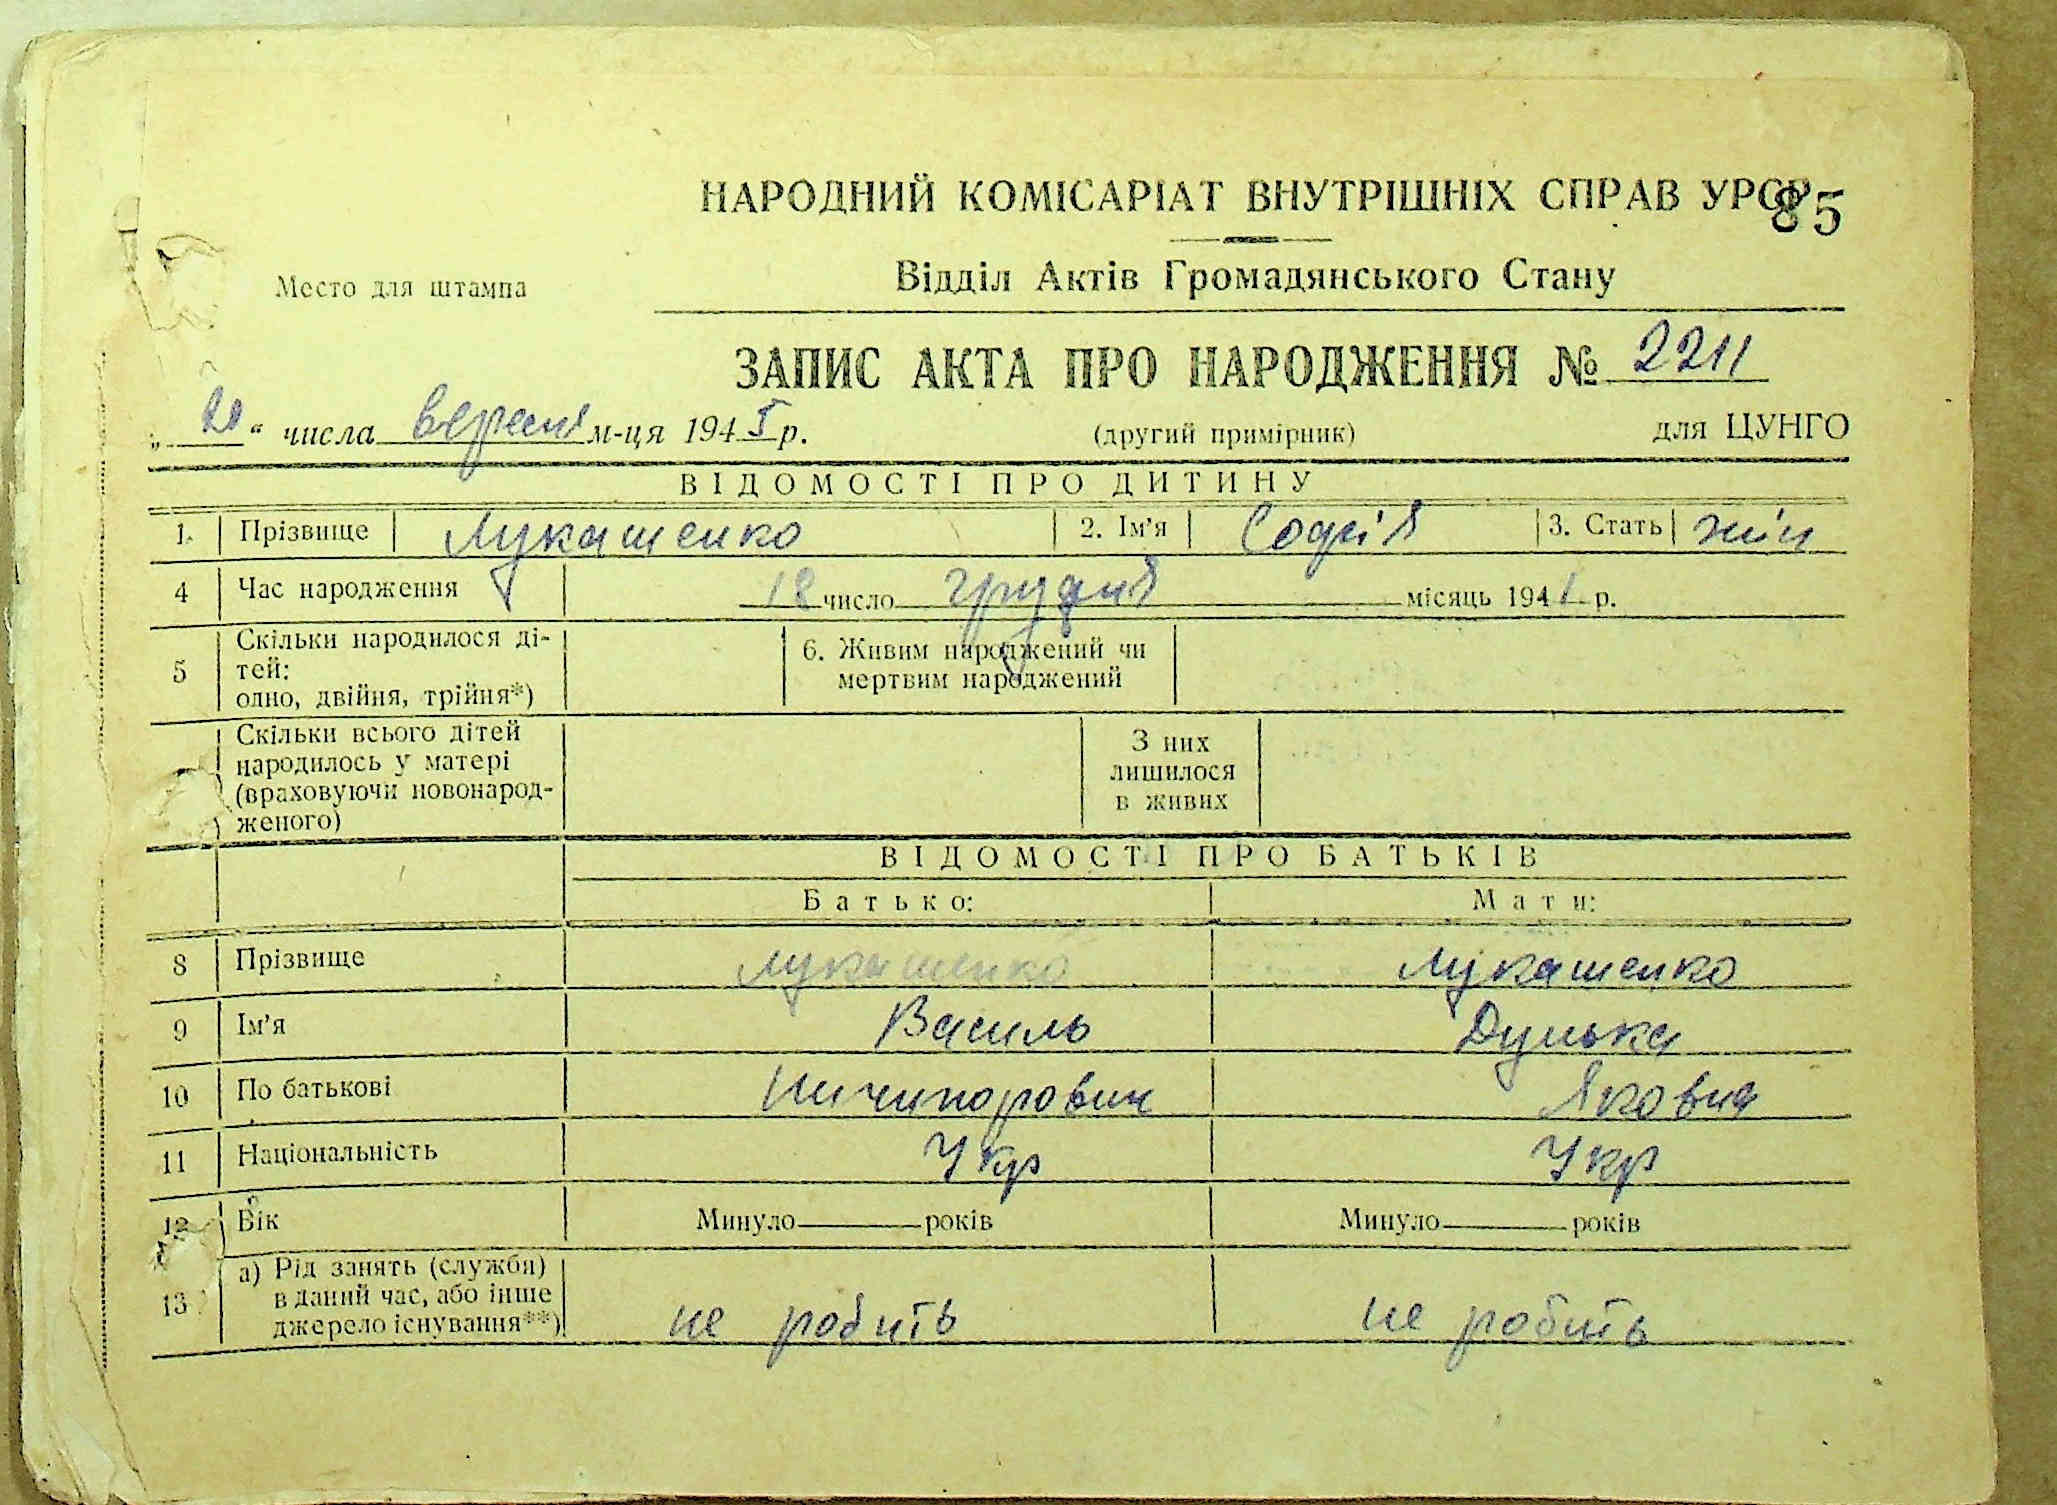 НАРОДНИЙ КОМІСАРІАТ ВНУТРІШНІХ СПРАВ УРСР
85
Место для штампа
Відділ Актів Громадянського Стану
ЗАПИС АКТА ПРО НАРОДЖЕННЯ № 2211
„ 20 “ числа вересня м-ця 1945 р. (другий примірник) для ЦУНГО
ВІДОМОСТІ ПРО ДИТИНУ
1. Прізвище Лукашенко 2. Ім'я Софія 3. Стать жін
4 Час народження 18 число грудня місяць 1941 р.
5 Скільки народилося ді-
тей:
одно, двійня, трійня*)
6. Живим народжений чи
мертвим народжений
Скільки всього дітей
народилось у матері
(враховуючи новонарод-
женого)
З них
лишилося
в живих
ВІДОМОСТІ ПРО БАТЬКІВ
Батько: Мати:
8 Прізвище Лукашенко Лукашенко
9 Ім'я Василь Дунька
10 По батькові Ничипорович Яковна
11 Національність Укр Укр
12 Вік Минуло років Минуло років
13 а) Рід занять (служби)
в даний час, або інше
джерело існування**)
не робить не робить